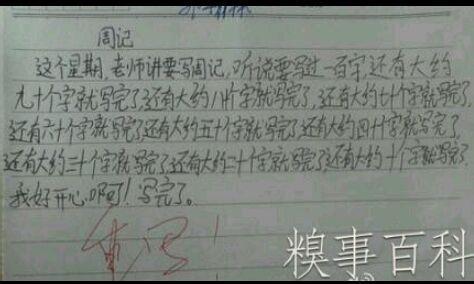 周记
这个星期,老师讲要写周记,听说要写过一百字,还有大约
九十个字就写完了,还有大约八十个字就写完了,还有大约七十个字就写完了
还有六十个字就写完了,还有大约五十个字就写完了,还有大约四十个字就写完了,
还有大约三十个字就写完了,还有大约二十个字就写完了,还有大约十个字就写完了
我好开心啊!写完了。
重写!
糗事百科